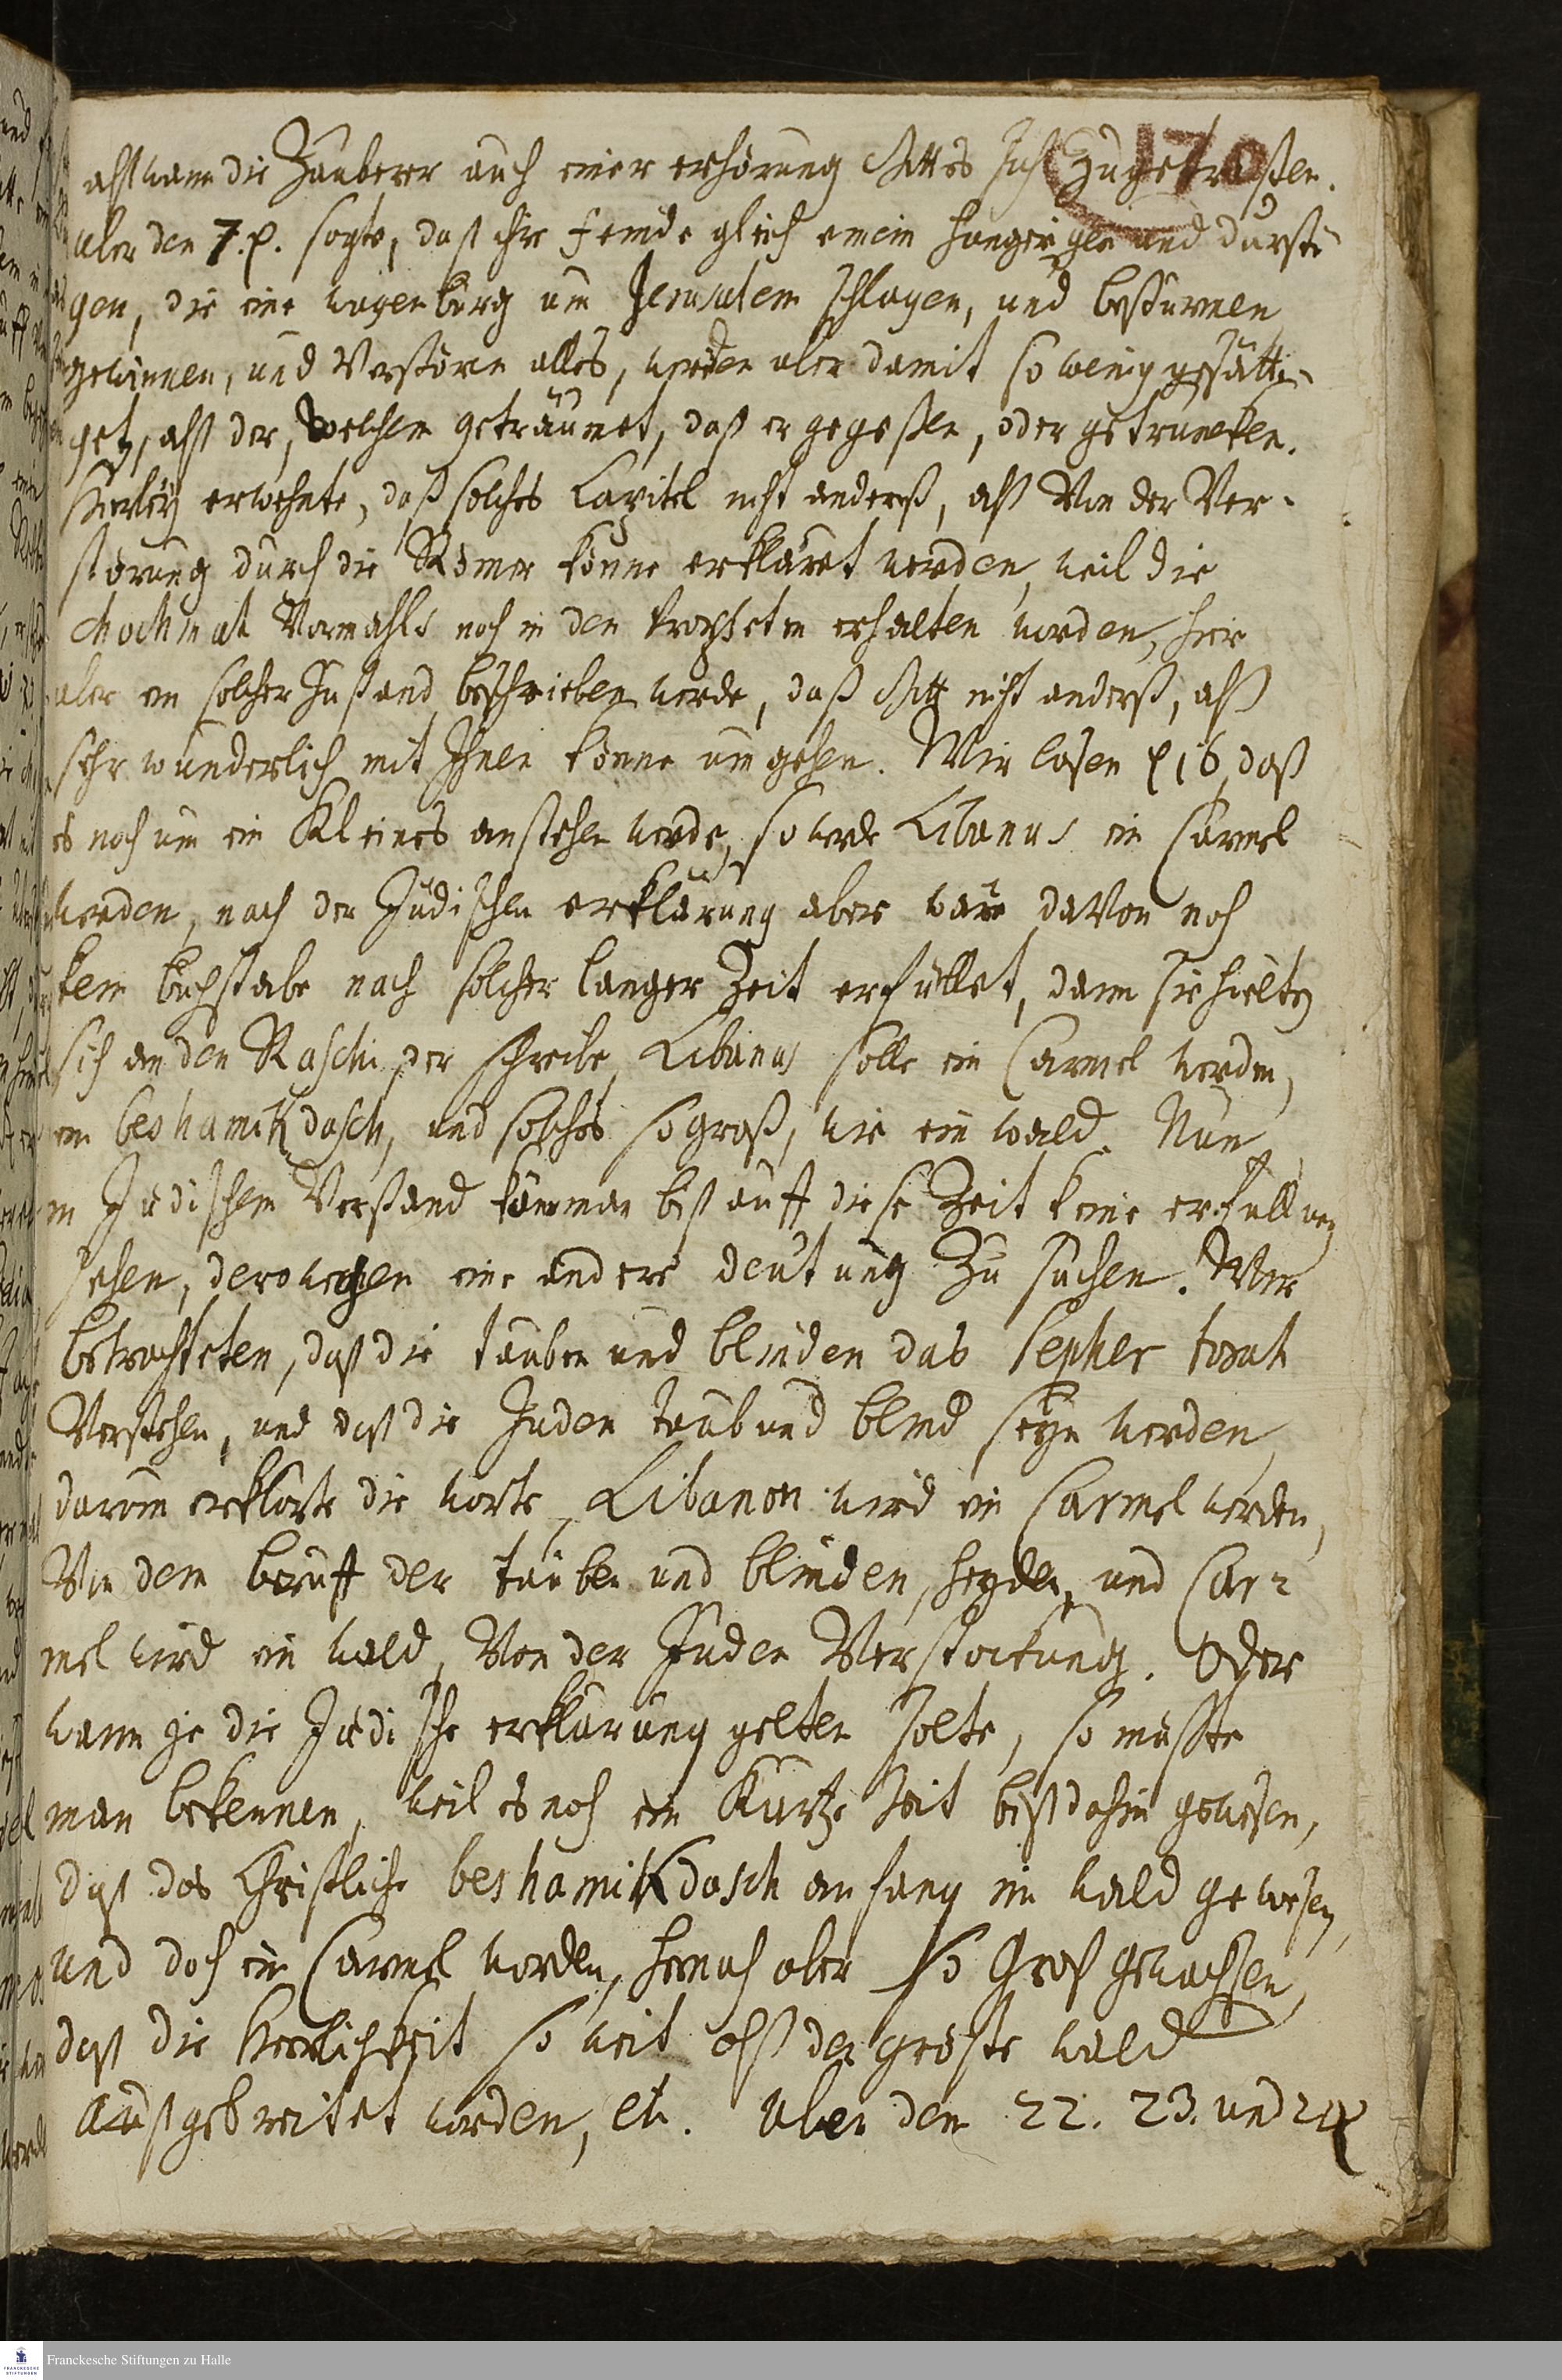 170
alß wann die Zauberer auch einer erhörung Gottes sich zugetrösten.
Uber den 7. ℣. sagte, daß ihre feinde gleich einem hungerigen und dursti-
gen, die eine wagenburg um Jerusalem schlagen, und bestürmen
gewinnen, und Verstören alles, werden aber damit so wenig gesätti-
get, alß der, welchem geträumet, daß er gegeßen, oder getruncken.
Hierbeÿ erwehnte, daß solches Capitel nicht anderß, alß Von der Ver-
störung durch die Römer könne erkläret werden, weil die
chochmat Vormahls noch in den Propheten erhalten worden, hier
aber ein solcher Zustand beschrieben werde, daß Gott nicht anderß, alß
sehr wunderlich mit Ihnen könne umgehen. Wir lasen ℣ 16, daß
es noch um ein Kleines anstehen werde, so werde Libanus ein Carmel
werden, nach der Jüdischen erklärung aber wäre daVon noch
kein buchstabe nach solcher langer Zeit erfüllet, dann sie hielten
sich an den Raschi, der schreibe, Libanus solle ein Carmel werden,
ein beshamikdasch, und solches so groß, wie ein wald. Nun
in Jüdischem Verstand könne man biß auff diese Zeit keine erfüllung
sehen, derowegen eine andere deutung zu suchen. Wir
betrachteten, daß die tauben und blinden das Sepher torah
Verstehen, und daß die Juden taub und blind seÿn werden,
darum erklärte die worte, Libanon wird ein Carmel werden,
Von dem beruff der tauben und blinden heyden, und Car-
mel wird ein wald, Von der Juden Verstockung. Oder
wann je die Jüdische erklärung gelten solte, so müste
man bekennen, weil es noch ein Kurtze Zeit bißdahin gewesen,
daß das Christliche beshamikdasch anfang im wald gewesen,
und doch ein Carmel worden, hernach aber so Groß gewachsen,
daß die Herrlichkeit so weit alß der gröste wald
außgebreitet worden, etc. Uber den 22. 23. und 24 ℣
Franckesche Stiftungen zu Halle